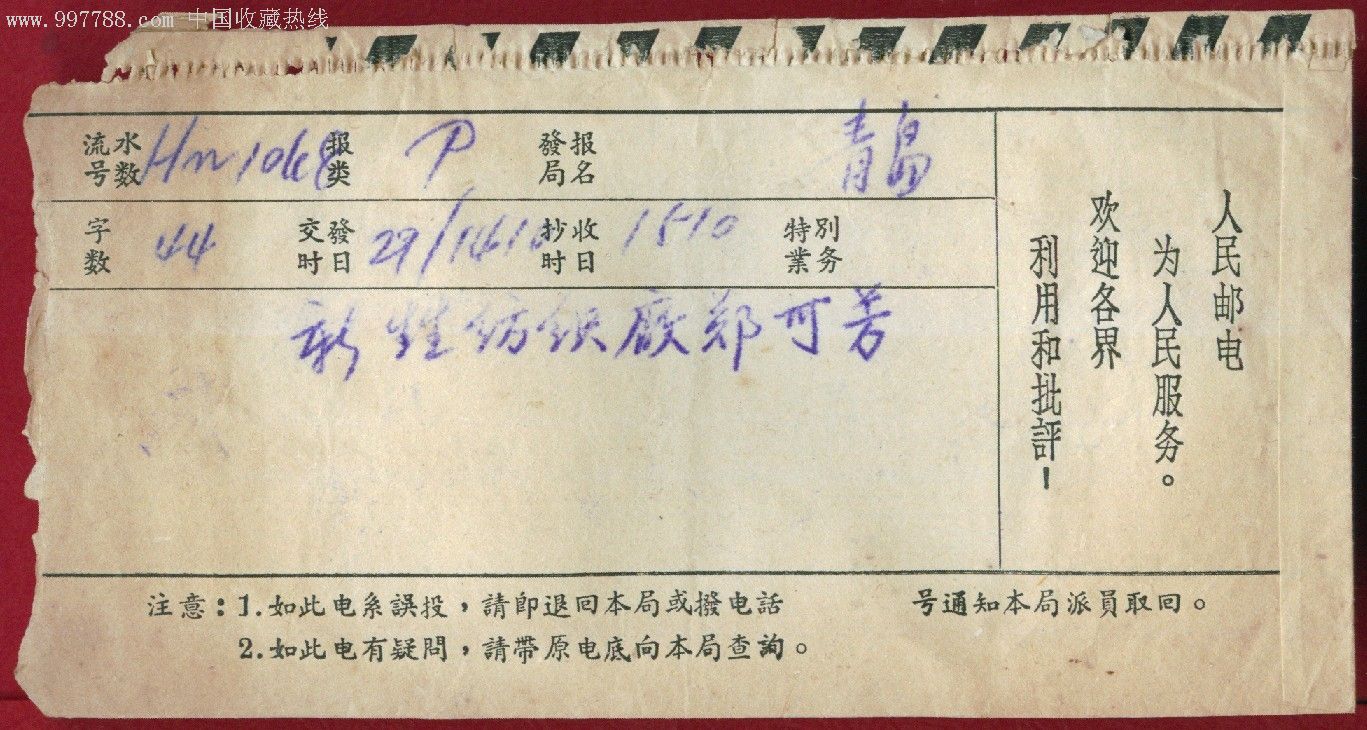 www.997788.com 中国收藏热线
流水号数 报类 P 發报局名 青島
字数 44 交發时日 抄收时日 1510 特別業务
纺织廠郑可芳
人民邮电
为人民服务。
欢迎各界
利用和批評！
注意：1.如此电系誤投，請卽退回本局或撥电話 号通知本局派員取回。
2.如此电有疑問，請帶原电底向本局查詢。